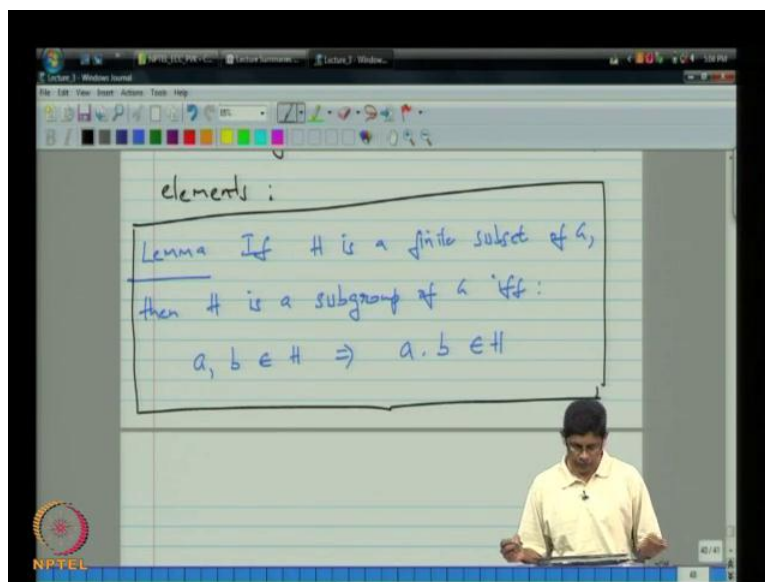 Lecture_3 - Windows Journal
File Edit View Insert Actions Tools Help
elements :
Lemma If H is a finite subset of G,
then H is a subgroup of G iff :
a, b ∈ H ⇒ a . b ∈ H
NPTEL
40/41